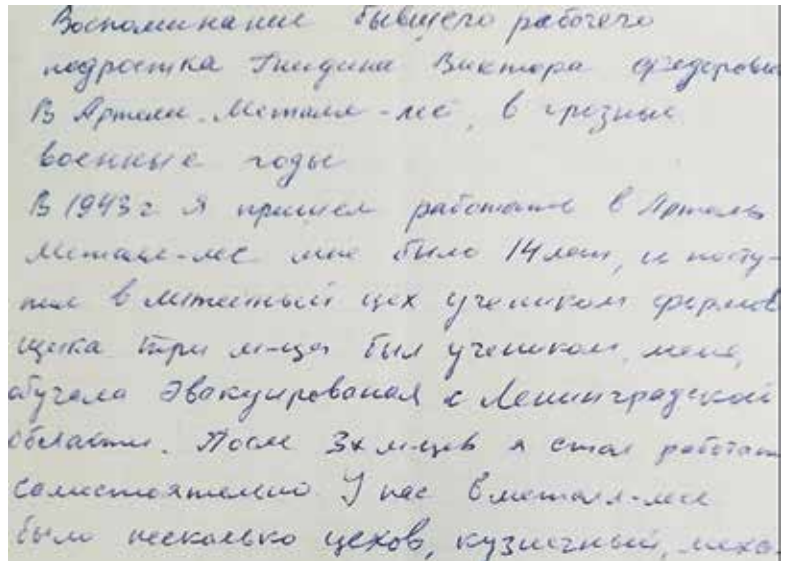 Воспоминание бывшего рабочего
подростка Виктора Федорови
В Артели Металл-лес, в грозные
военные годы
В 1943 г я пришел работать в Артель
Металл-лес мне было 14 лет, и посту-
пил в литейный цех учеником формов
щика три м-ца был учеником, меня,
обучала Эвакуированая с Ленинградской
области. После 3х м-цев я стал работат
самостоятельно У нас в металл-лесе
было несколько цехов, кузнечный, меха-